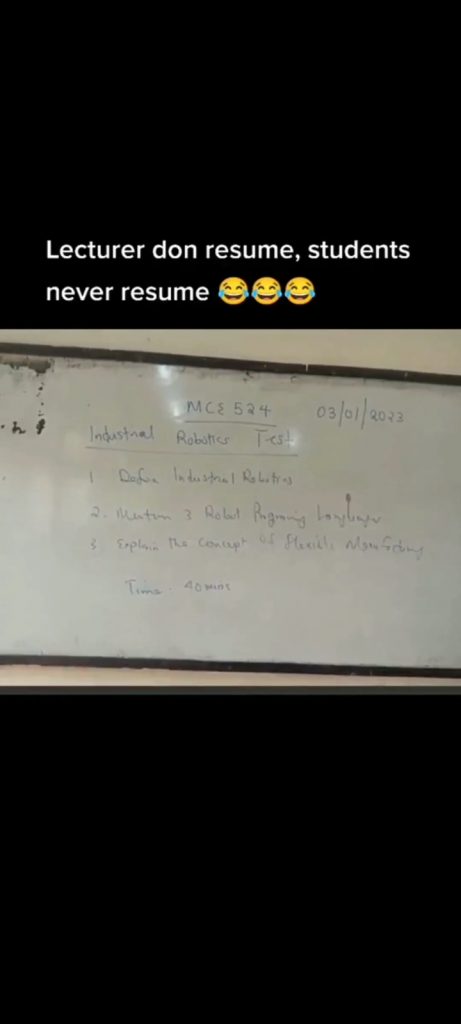 Lecturer don resume, students
never resume 😂😂😂
MCE 524
03/01/2023
Industrial Robotics Test
1 Define Industrial Robotics
2. Mention 3 Robot Programing Languages
3 Explain the concept of Flexible Manufacturing
Time. 40mins